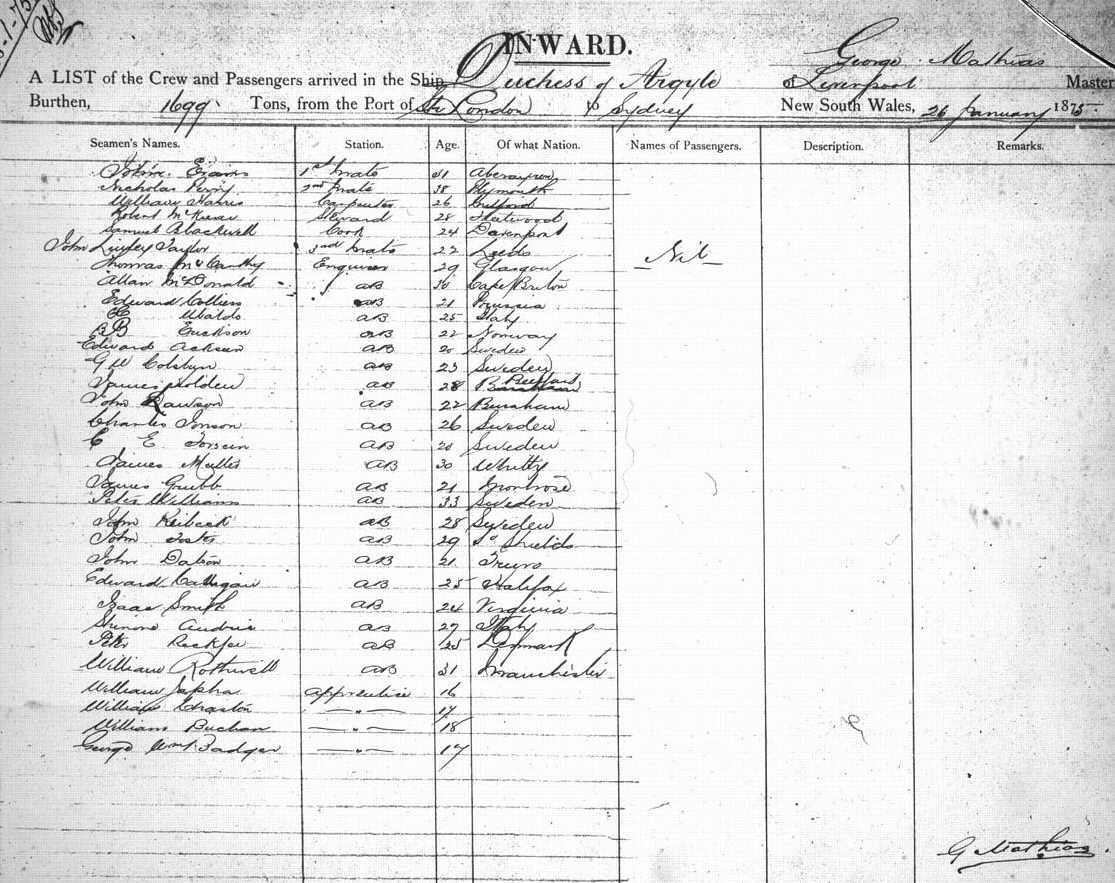 INWARD.
George Mathias
A LIST of the Crew and Passengers arrived in the Ship Duchess of Argyle of Liverpool Master
Burthen, 1699 Tons, from the Port of London to Sydney New South Wales, 26 January 1875
Seamen's Names. Station. Age. Of what Nation. Names of Passengers. Description. Remarks.
John Evans 1st Mate 51 Aberayron
Nicholas Perry 2nd Mate 38 Plymouth
William Harris Carpenter 26 Guilford
Robert Steward 28 Fleetwood
Samuel Blackwell Cook 24 Davenport
John Linfey Taylor 3rd Mate 22 Leeds
Nil
Thomas McCarthy Engineer 29 Glasgow
Allan McDonald AB 30 Cape Breton
Edward Colliers AB 21 Prussia
Ubaldo AB 25 Italy
B Erickson AB 22 Norway
Edward AB 20 Sweden
G W AB 23 Sweden
James Holden AB 28 Belfast
John Rawson AB 22
Charles Jonson AB 26 Sweden
C E AB 20 Sweden
James AB 30 Whitby
James Grubb AB 21 Montrose
Peter Williams AB 33 Sweden
John AB 28 Sweden
John Foster AB 29 So Shields
John AB 21 Truro
Edward AB 25 Halifax
Isaac Smith AB 24 Virginia
AB 27 Italy
Peter AB 25 Denmark
William Rothwell AB 31 Manchester
William Japha Apprentice 16
William —"— 17
William Buchan —"— 18
George Wm Badger —"— 17
G Mathias.